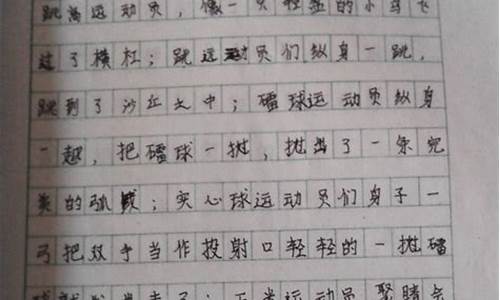 跳高运动员，像一只轻盈的小鸟飞
过了横杠；跳远运动员们纵身一跳，
跳到了沙丘之中；礌球运动员纵身
一越，把礌球一抛，抛出了一条完
美的弧；实心球运动员们身子一
弓把双手当作投射口轻轻的一抛礌